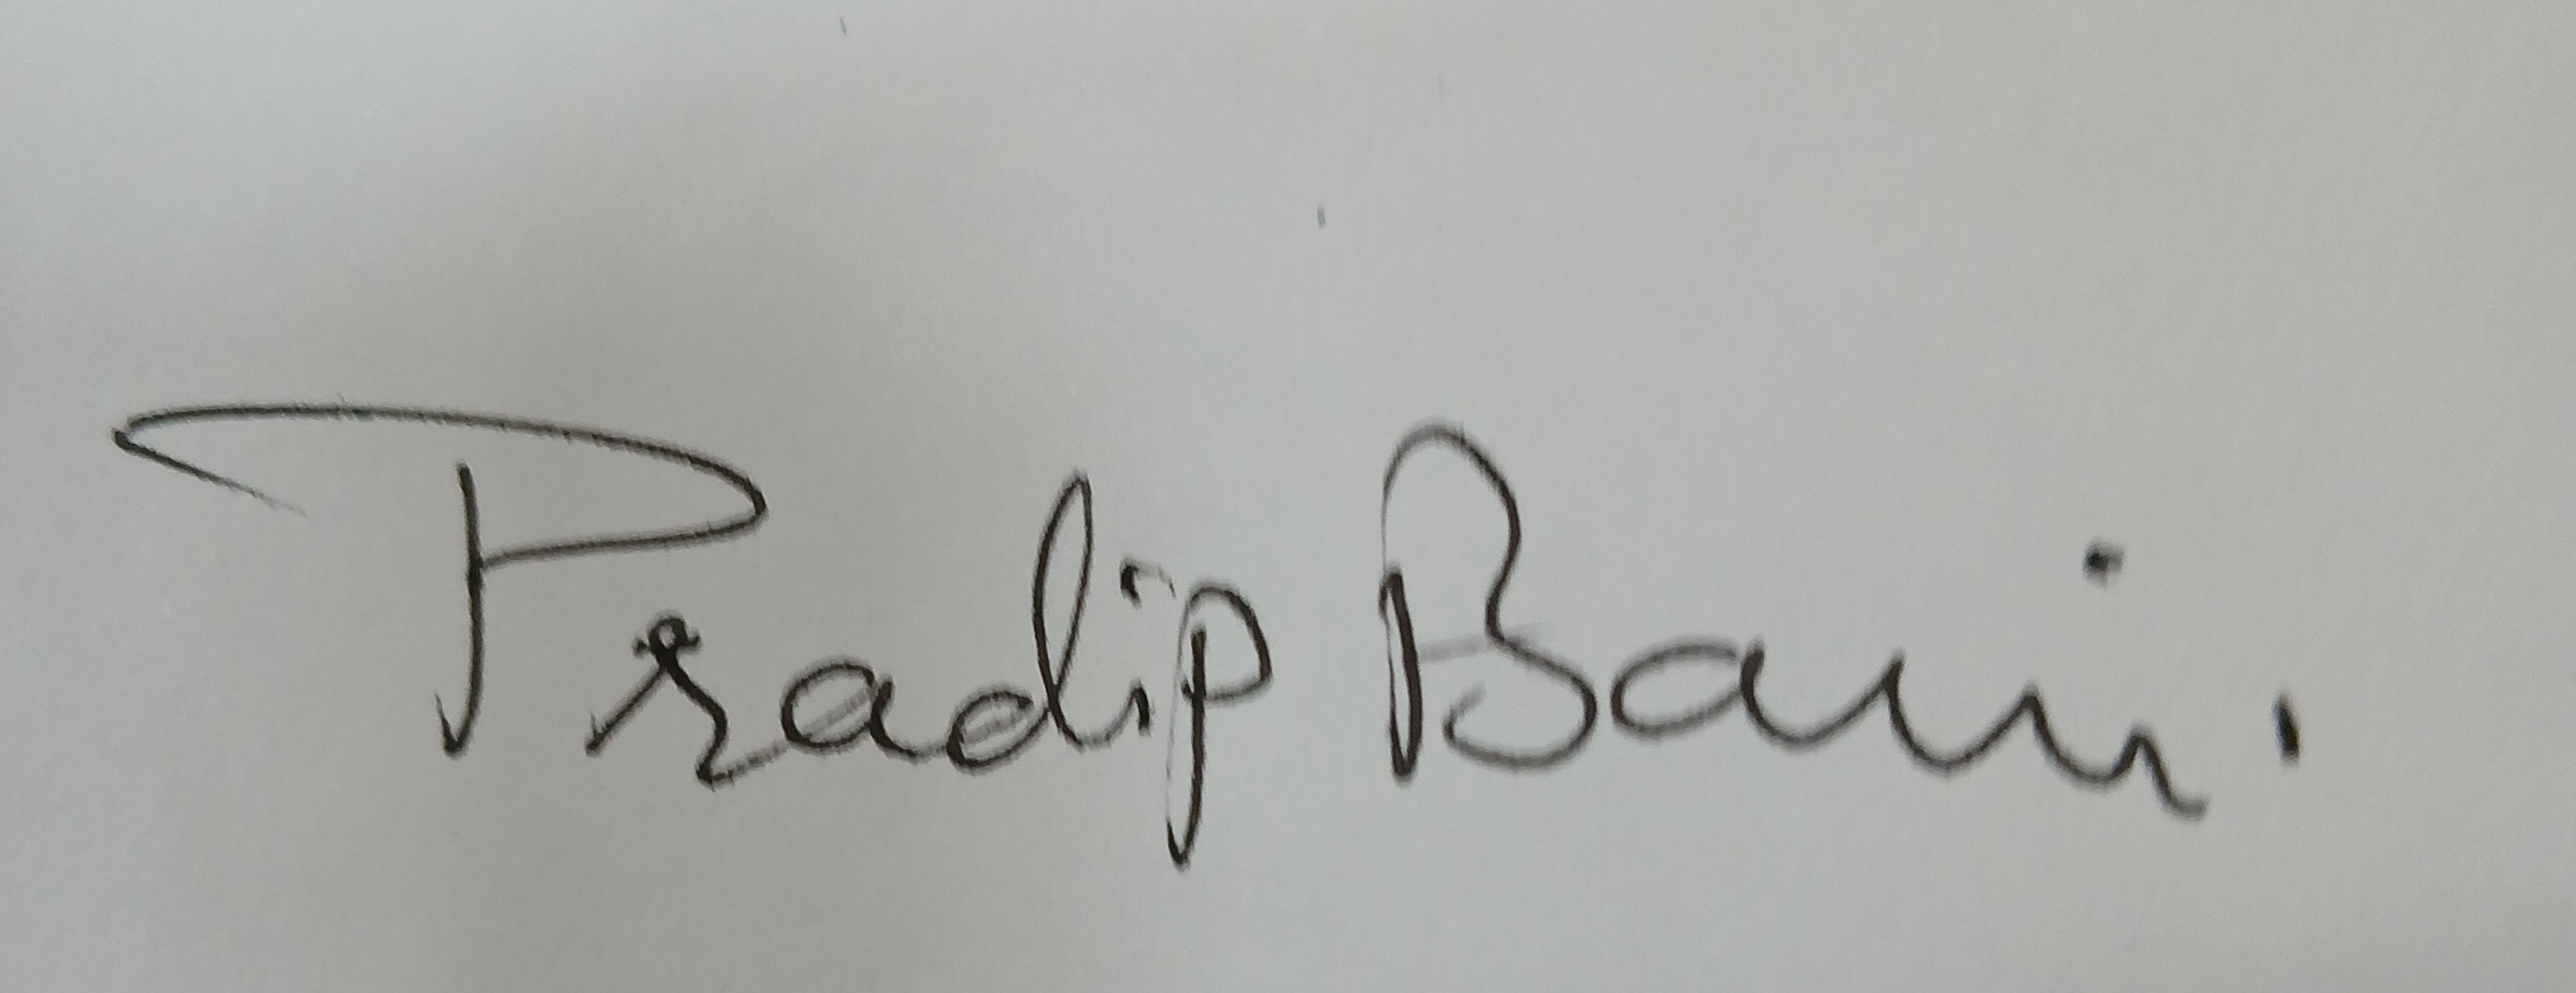 Pradip Bauri.